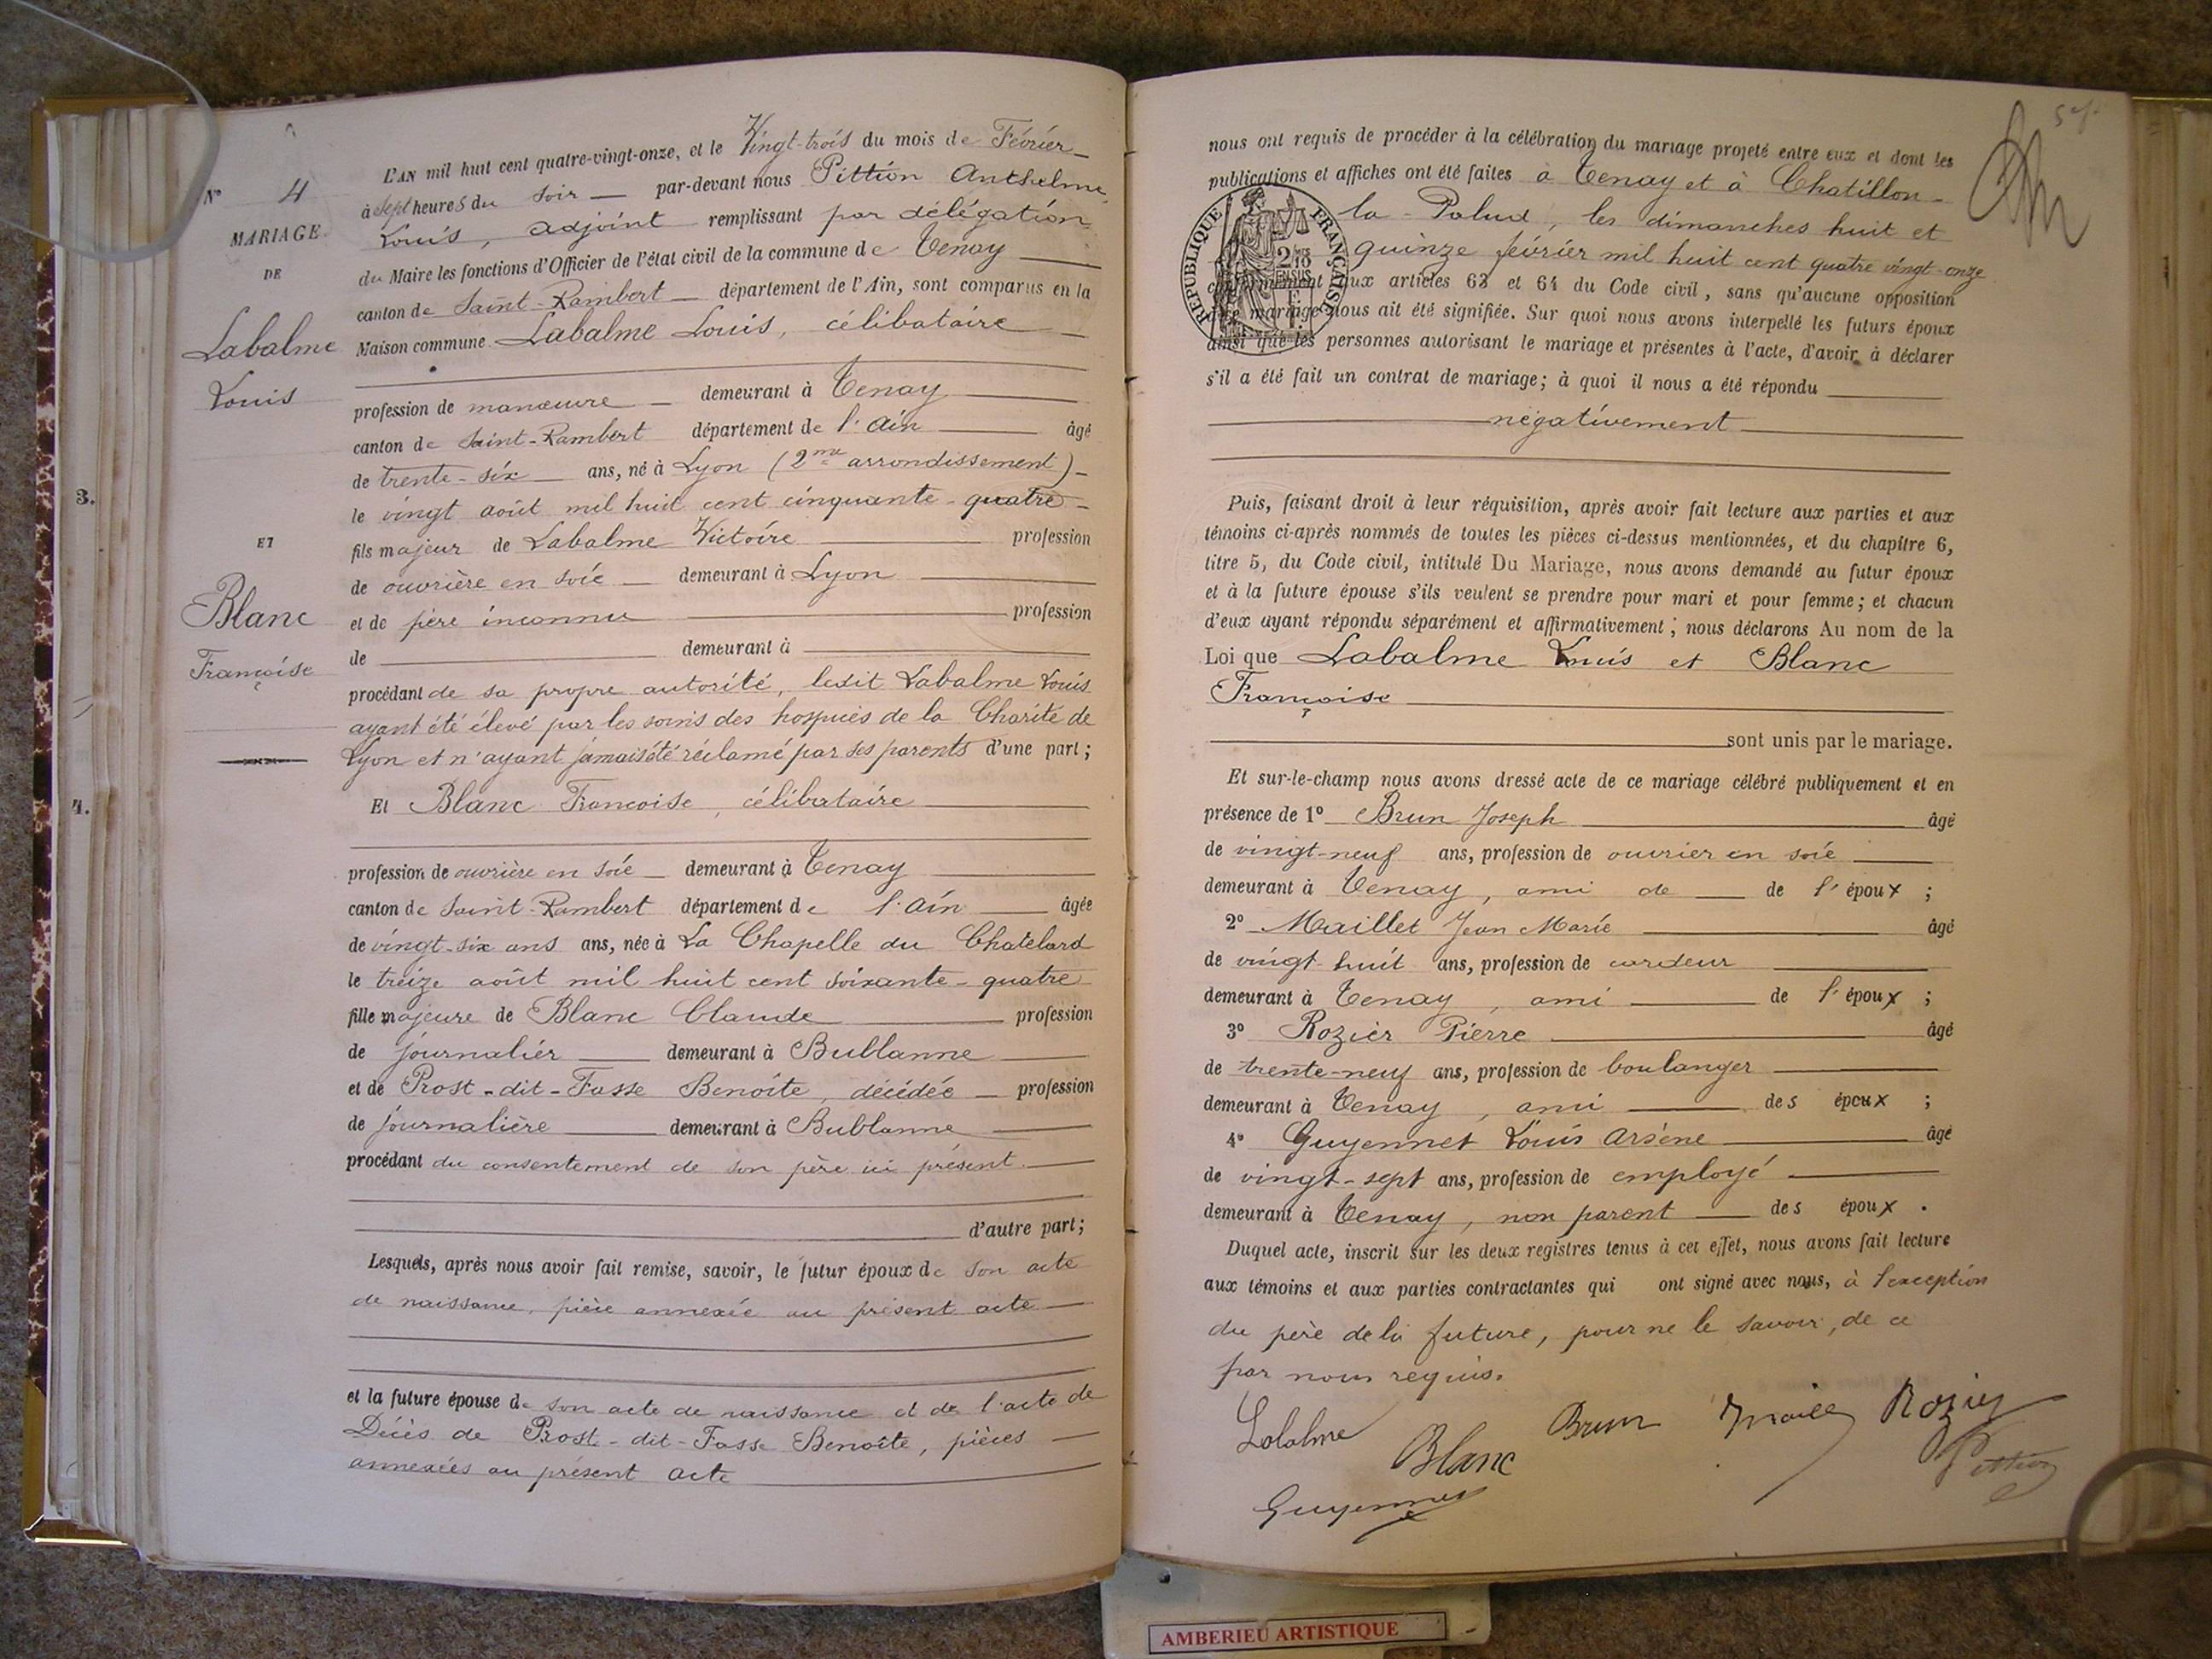 N° 4
MARIAGE
DE
Labalme
Louis
ET
Blanc
Françoise
3.
4.
L'AN mil huit cent quatre-vingt-onze, et le Vingt-trois du mois de Février
à sept heures du soir par-devant nous Pittion Anthelme
Louis, adjoint remplissant par délégation
du Maire les fonctions d'Officier de l'état civil de la commune de Tenay
canton de Saint-Rambert département de l'Ain, sont comparus en la
Maison commune Labalme Louis, célibataire
profession de manœuvre demeurant à Tenay
canton de Saint-Rambert département de l'Ain âgé
de trente-six ans, né à Lyon (2me arrondissement)
le vingt août mil huit cent cinquante-quatre
fils majeur de Labalme Victoire profession
de ouvrière en soie demeurant à Lyon
et de père inconnu profession
de demeurant à
procédant de sa propre autorité, ledit Labalme Louis
ayant été élevé par les soins des hospices de la Charité de
Lyon et n'ayant jamais été réclamé par ses parents d'une part;
Et Blanc Françoise, célibataire
profession de ouvrière en soie demeurant à Tenay
canton de Saint-Rambert département de l'Ain âgée
de vingt-six ans ans, née à La Chapelle du Chatelard
le treize août mil huit cent soixante-quatre
fille majeure de Blanc Claude profession
de journalier demeurant à Bublanne
et de Prost-dit-Fasse Benoîte, décédée profession
de journalière demeurant à Bublanne
procédant du consentement de son père ici présent
d'autre part;
Lesquels, après nous avoir fait remise, savoir, le futur époux de son acte
de naissance, pièce annexée au présent acte
et la future épouse de son acte de naissance et de l'acte de
Décès de Prost-dit-Fasse Benoîte, pièces
annexées au présent acte
nous ont requis de procéder à la célébration du mariage projeté entre eux et dont les
publications et affiches ont été faites à Tenay et à Chatillon-
la-Palud, les dimanches huit et
quinze février mil huit cent quatre vingt-onze
conformément aux articles 63 et 64 du Code civil, sans qu'aucune opposition
mariage nous ait été signifiée. Sur quoi nous avons interpellé les futurs époux
ainsi que les personnes autorisant le mariage et présentes à l'acte, d'avoir à déclarer
s'il a été fait un contrat de mariage; à quoi il nous a été répondu
négativement
REPUBLIQUE FRANÇAISE
Puis, faisant droit à leur réquisition, après avoir fait lecture aux parties et aux
témoins ci-après nommés de toutes les pièces ci-dessus mentionnées, et du chapitre 6,
titre 5, du Code civil, intitulé Du Mariage, nous avons demandé au futur époux
et à la future épouse s'ils veulent se prendre pour mari et pour femme; et chacun
d'eux ayant répondu séparément et affirmativement; nous déclarons Au nom de la
Loi que Labalme Louis et Blanc
Françoise
sont unis par le mariage.
Et sur-le-champ nous avons dressé acte de ce mariage célébré publiquement et en
présence de 1° Brun Joseph âgé
de vingt-neuf ans, profession de ouvrier en soie
demeurant à Tenay, ami de de l'époux;
2° Maillet Jean Marie âgé
de vingt-huit ans, profession de cardeur
demeurant à Tenay, ami de l'époux;
3° Rozier Pierre âgé
de trente-neuf ans, profession de boulanger
demeurant à Tenay, ami des époux;
4° Guyennet Louis Arsène âgé
de vingt-sept ans, profession de employé
demeurant à Tenay, non parent des époux.
Duquel acte, inscrit sur les deux registres tenus à cet effet, nous avons fait lecture
aux témoins et aux parties contractantes qui ont signé avec nous, à l'exception
du père de la future, pour ne le savoir, de ce
par nous requis.
Labalme Blanc Brun Rozier
Pittion
Guyennet
AMBERIEU ARTISTIQUE